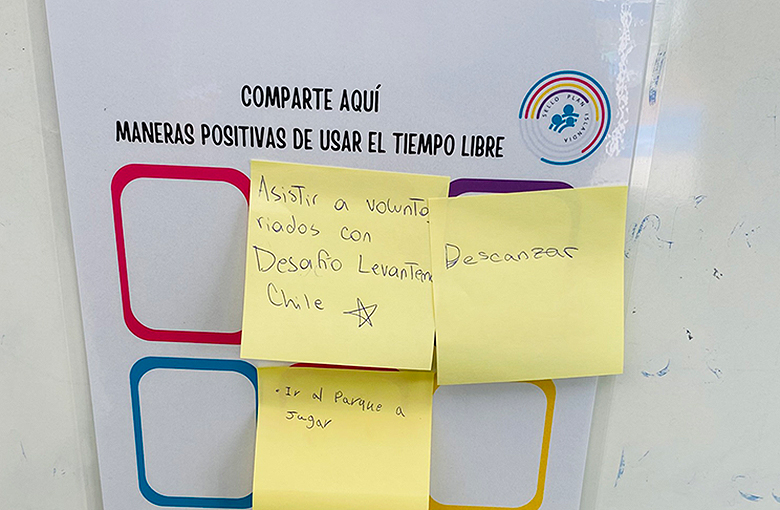 COMPARTE AQUÍ
MANERAS POSITIVAS DE USAR EL TIEMPO LIBRE
SELLO PLAN ISLANDIA
Asistir a volunta
riados con
Desafío Levantem
Chile
Descanzar
- Ir al Parque a
Jugar